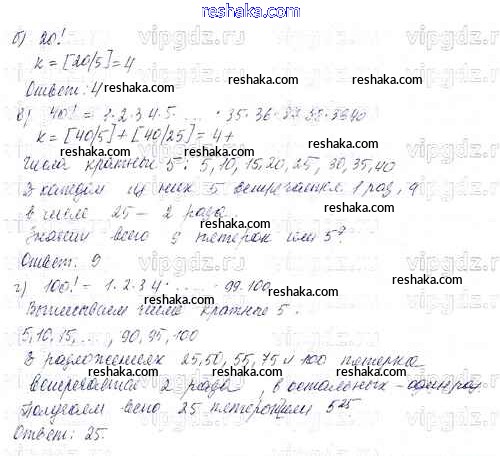 reshaka.com
б) 20!
k = [20/5] = 4
Ответ: 4 reshaka.com
в) 40! = 1·2·3 4·5· ... ·35·36·37·38·39 40
k = [40/5] + [40/25] = 4+
числа кратные 5: 5, 10, 15, 20, 25, 30, 35, 40
В каждом из них 5 встречается 1 раз, а
в числе 25 – 2 раза.
Значит всего 9 пятерок или 5⁹
Ответ: 9
г) 100! = 1·2·3 4· ... · 99·100
Выписываем числа кратные 5.
5, 10, 15, ..., 90, 95, 100
В разложениях 25, 50, 55, 75 и 100 пятерка
встречается 2 раза, в остальных – один раз
Получаем всего 25 пятерок или 5²⁵
Ответ: 25.
reshaka.com